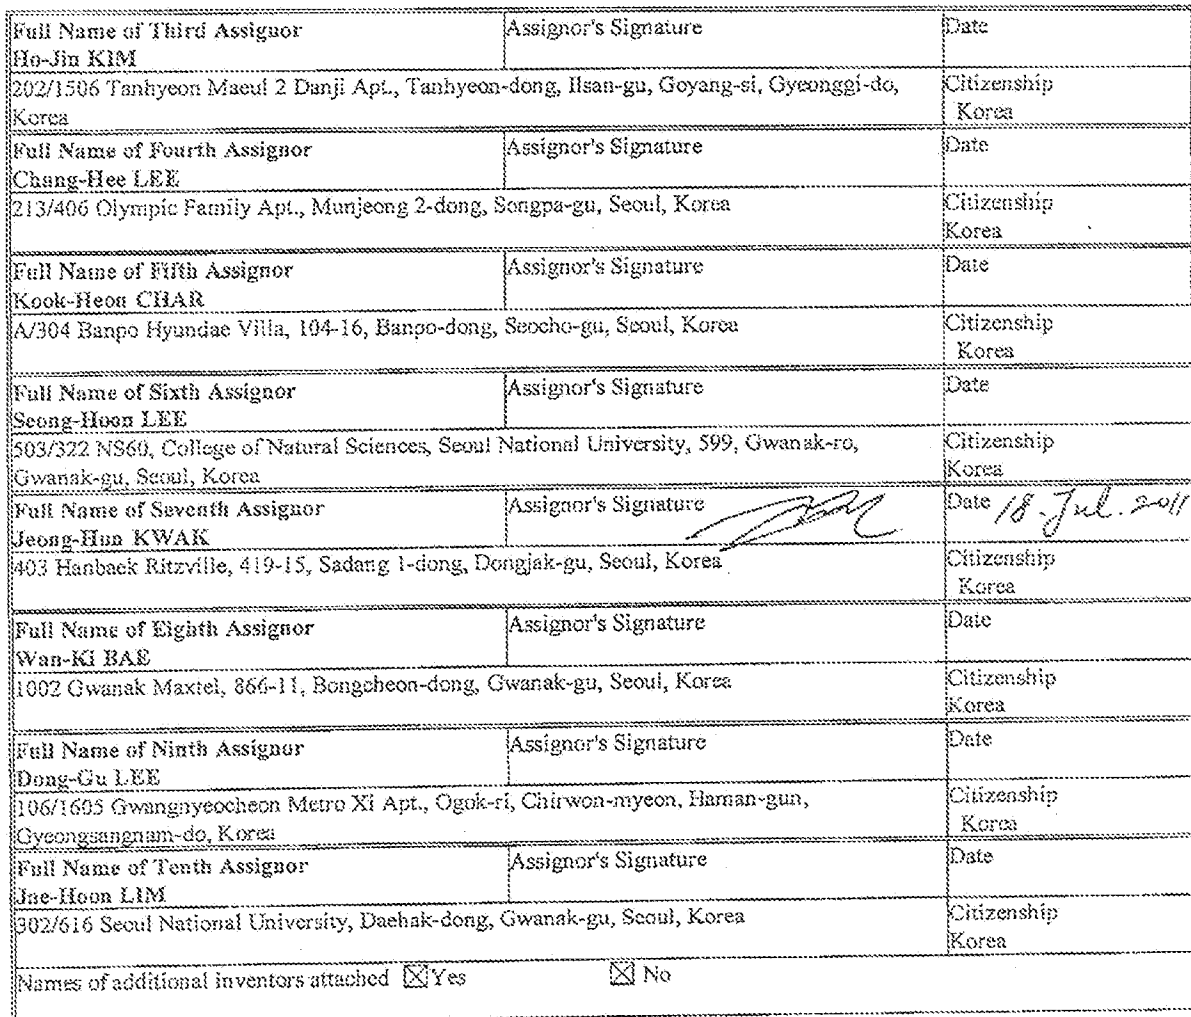 Full Name of Third Assignor Assignor's Signature Date
Ho-Jin KIM
202/1506 Tanhyeon Maeul 2 Danji Apt., Tanhyeon-dong, Ilsan-gu, Goyang-si, Gyeonggi-do, Citizenship
Korea Korea
Full Name of Fourth Assignor Assignor's Signature Date
Chang-Hee LEE
213/406 Olympic Family Apt., Munjeong 2-dong, Songpa-gu, Seoul, Korea Citizenship
Korea
Full Name of Fifth Assignor Assignor's Signature Date
Kook-Heon CHAR
A/304 Banpo Hyundae Villa, 104-16, Banpo-dong, Seocho-gu, Seoul, Korea Citizenship
Korea
Full Name of Sixth Assignor Assignor's Signature Date
Seong-Hoon LEE
503/322 NS60, College of Natural Sciences, Seoul National University, 599, Gwanak-ro, Citizenship
Gwanak-gu, Seoul, Korea Korea
Full Name of Seventh Assignor Assignor's Signature Date 18. Jul. 2011
Jeong-Hun KWAK
403 Hanbaek Ritzville, 419-15, Sadang 1-dong, Dongjak-gu, Seoul, Korea Citizenship
Korea
Full Name of Eighth Assignor Assignor's Signature Date
Wan-Ki BAE
1002 Gwanak Maxtel, 866-11, Bongcheon-dong, Gwanak-gu, Seoul, Korea Citizenship
Korea
Full Name of Ninth Assignor Assignor's Signature Date
Dong-Gu LEE
106/1605 Gwangnyeocheon Metro Xi Apt., Ogok-ri, Chirwon-myeon, Haman-gun, Citizenship
Gyeongsangnam-do, Korea Korea
Full Name of Tenth Assignor Assignor's Signature Date
Jae-Hoon LIM
302/616 Seoul National University, Daehak-dong, Gwanak-gu, Seoul, Korea Citizenship
Korea
Names of additional inventors attached ☒ Yes ☒ No